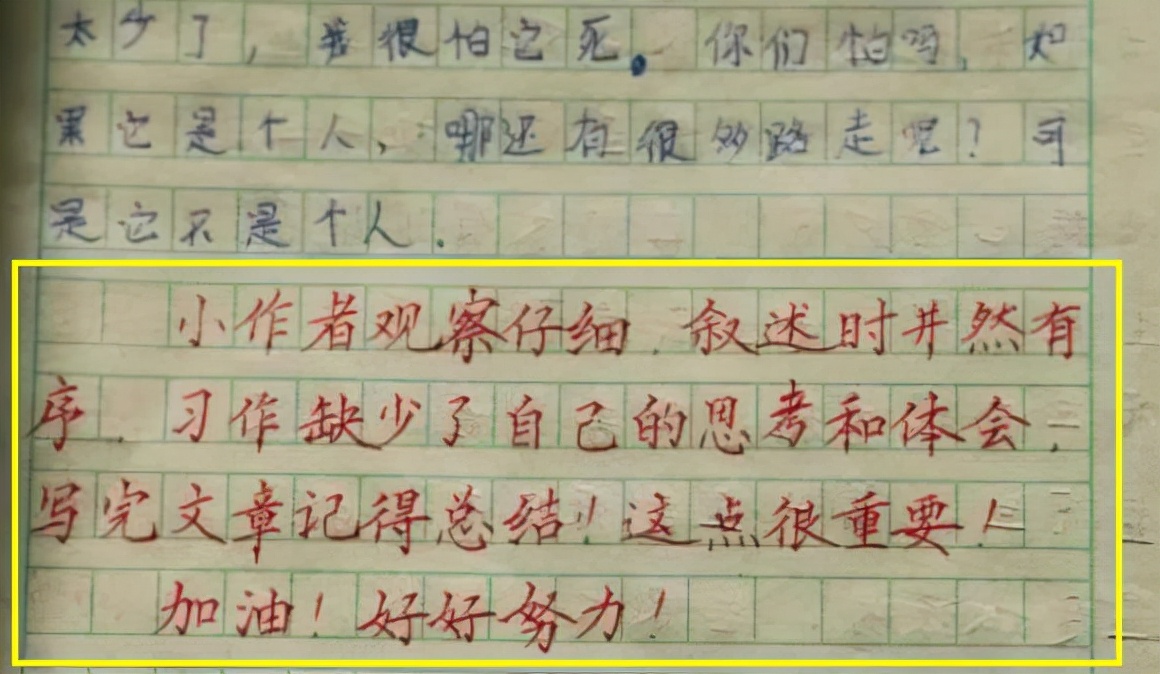 太少了，我很怕它死。你们怕吗，如
果它是个人，哪还有很多路走呢？可
是它不是个人．
小作者观察仔细．叙述时井然有
序．习作缺少了自己的思考和体会，
写完文章记得总结！这点很重要！
加油！好好努力！